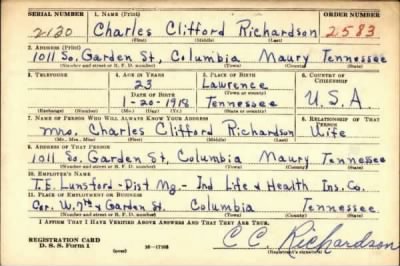 SERIAL NUMBER 1. NAME (Print) ORDER NUMBER
2120 Charles Clifford Richardson 2583
(First) (Middle) (Last)
2. ADDRESS (Print)
1011 So. Garden St, Columbia Maury Tennessee
(Number and street or R. F. D. number) (Town) (County) (State)
3. TELEPHONE 4. AGE IN YEARS 5. PLACE OF BIRTH 6. COUNTRY OF CITIZENSHIP
23 Lawrence
(Town or county)
DATE OF BIRTH
1-20-1918 Tennessee U.S.A.
(Exchange) (No.) (Mo.) (Day) (Yr.) (State or country)
7. NAME OF PERSON WHO WILL ALWAYS KNOW YOUR ADDRESS 8. RELATIONSHIP OF THAT PERSON
Mrs. Charles Clifford Richardson Wife
(Mr., Mrs., Miss) (First) (Middle) (Last)
9. ADDRESS OF THAT PERSON
1011 So. Garden St, Columbia Maury Tennessee
(Number and street or R. F. D. number) (Town) (County) (State)
10. EMPLOYER'S NAME
T.E. Lunsford - Dist Mg. - Ind Life & Health Ins. Co.
11. PLACE OF EMPLOYMENT OR BUSINESS
Cor. W. 7th & Garden St. Columbia Tennessee
(Number and street or R. F. D. number) (Town) (County) (State)
I AFFIRM THAT I HAVE VERIFIED ABOVE ANSWERS AND THAT THEY ARE TRUE.
REGISTRATION CARD
D. S. S. Form 1 (over) C.C. Richardson
(Registrant's signature)